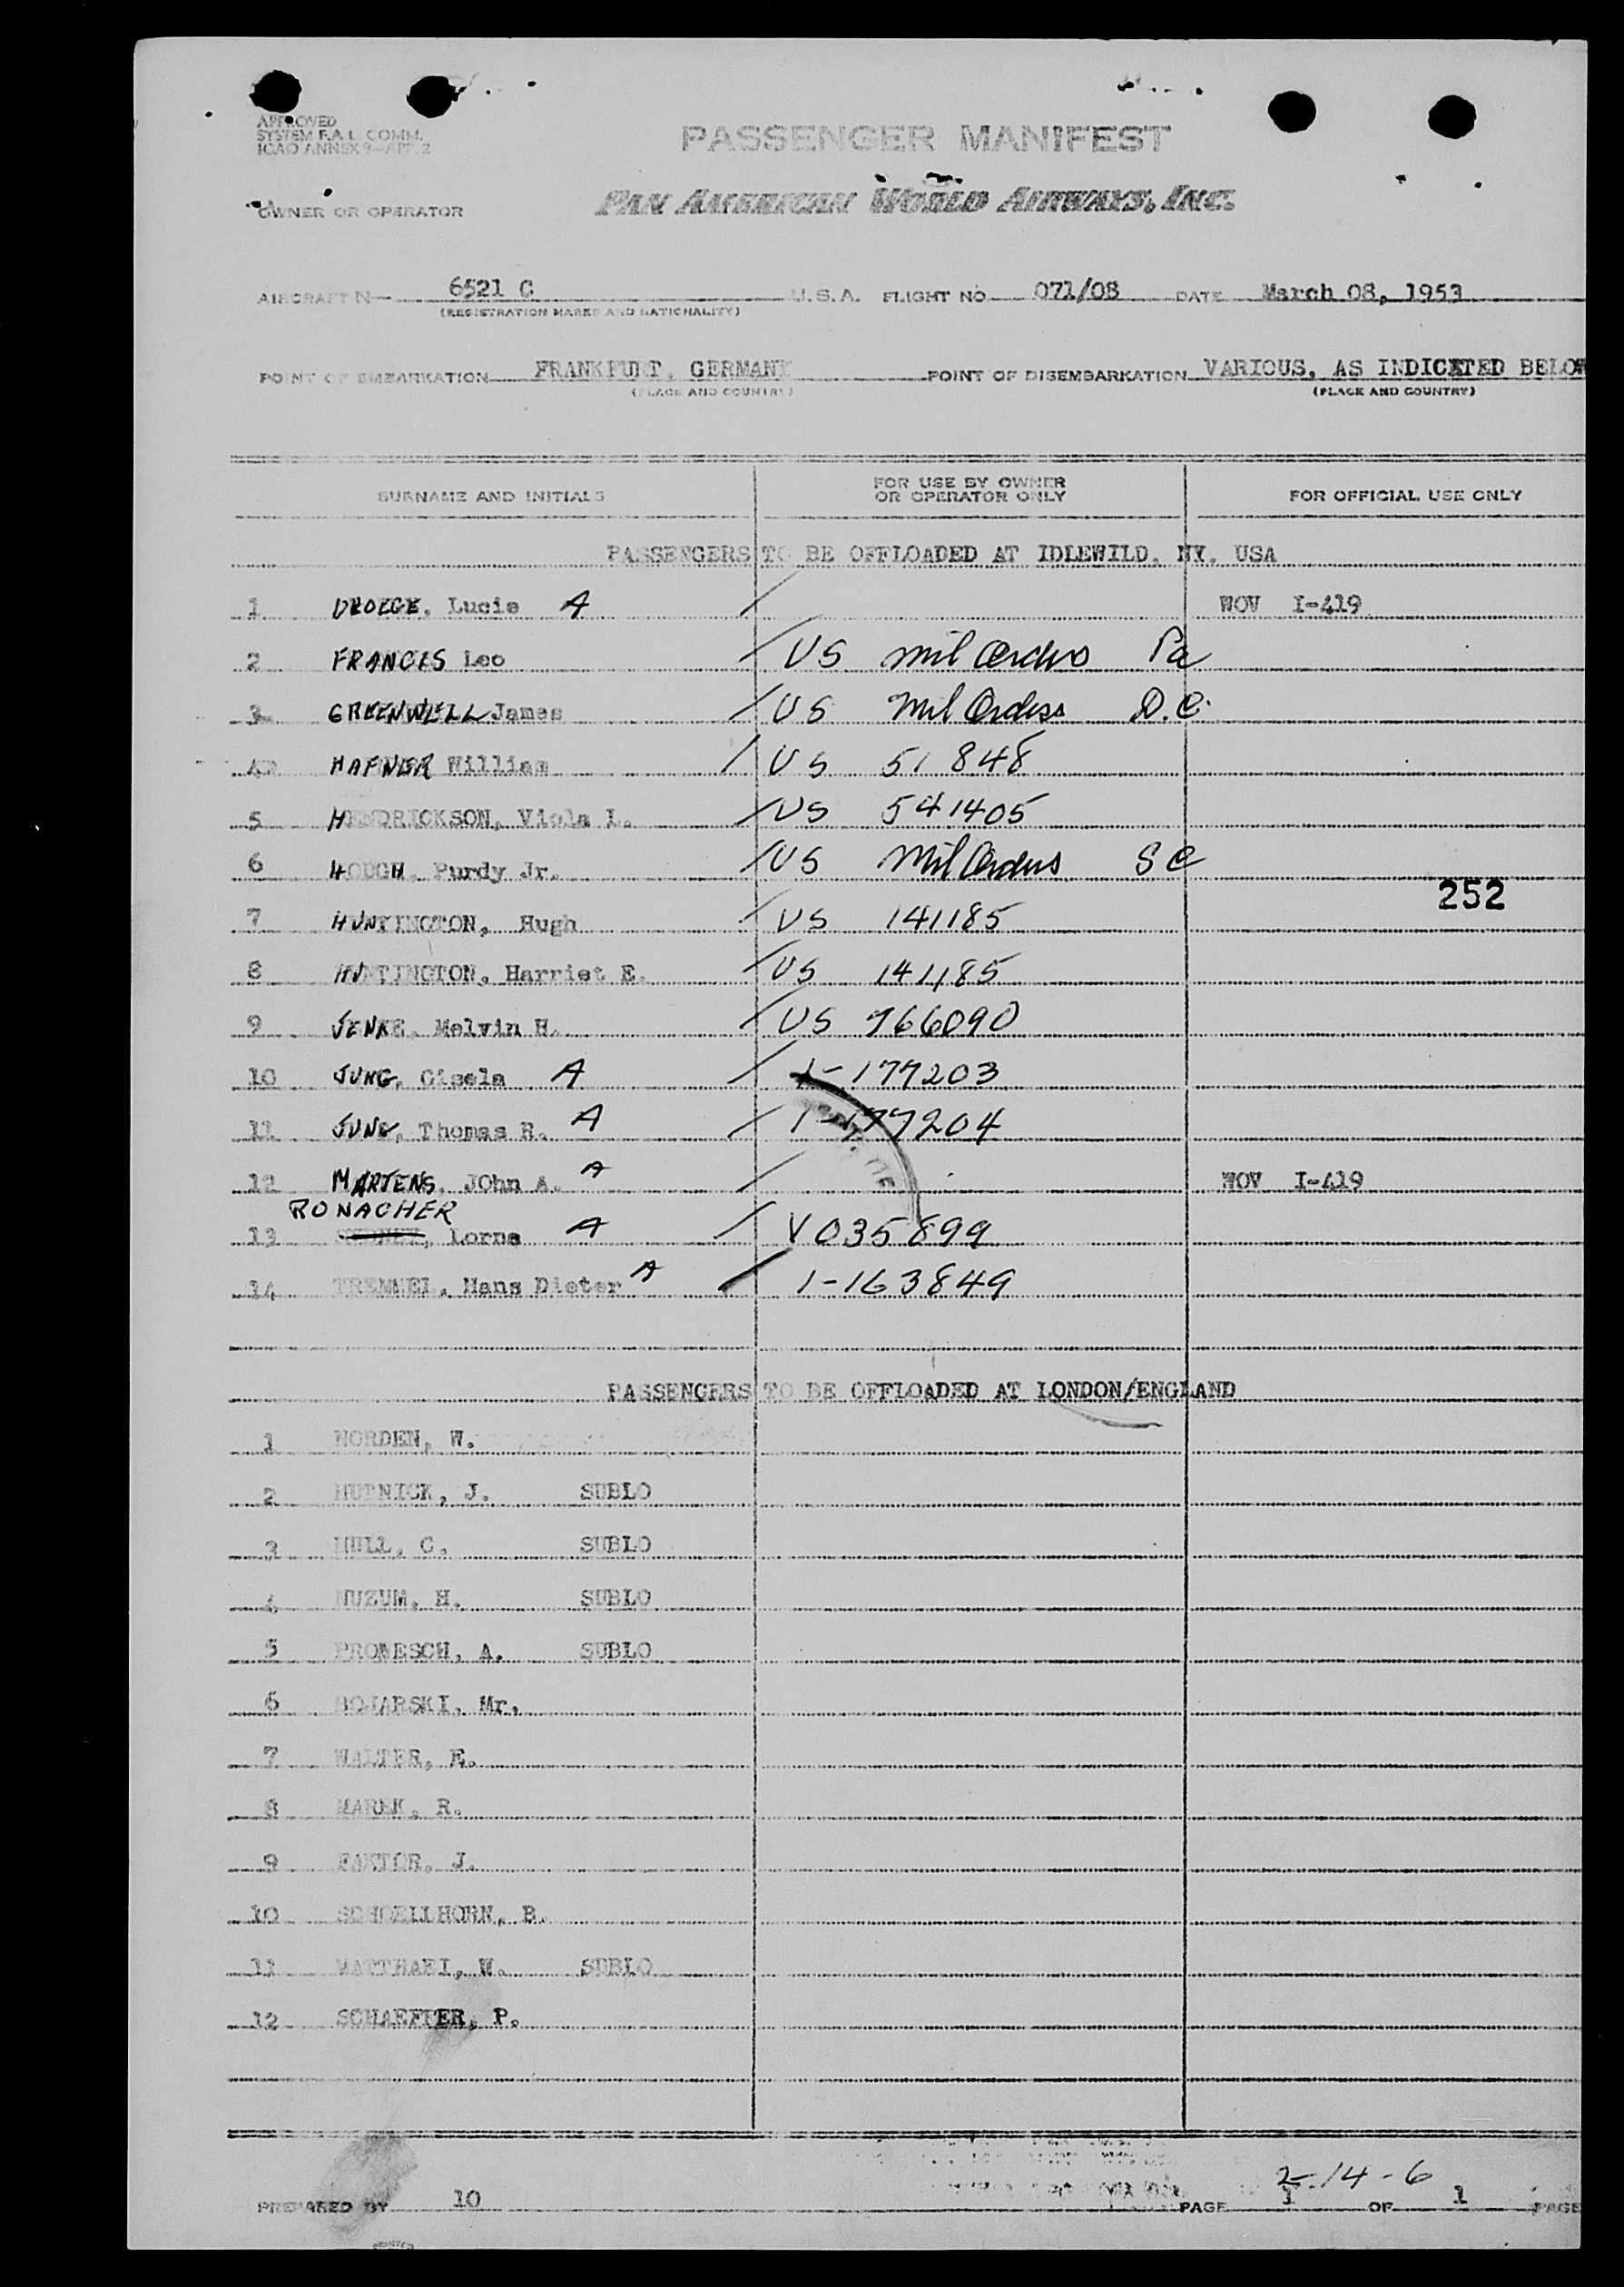 APPROVED
SYSTEM F.A.L. COMM.
ICAO ANNEX 9-APP. 2
PASSENGER MANIFEST
OWNER OR OPERATOR PAN AMERICAN WORLD AIRWAYS, INC.
AIRCRAFT N 6521 C U.S.A. FLIGHT NO 071/08 DATE March 08, 1953
(REGISTRATION MARKS AND NATIONALITY)
POINT OF EMBARKATION FRANKFURT, GERMANY POINT OF DISEMBARKATION VARIOUS, AS INDICATED BELOW
(PLACE AND COUNTRY) (PLACE AND COUNTRY)
SURNAME AND INITIALS FOR USE BY OWNER OR OPERATOR ONLY FOR OFFICIAL USE ONLY
PASSENGERS TO BE OFFLOADED AT IDLEWILD, NY, USA
1 DROEGE, Lucie A / WOV I-419
2 FRANCIS Leo / US Mil Orders Pa
3 GREENWELL James / US Mil Orders D.C.
4 HAFNER William / US 51848
5 HENDRICKSON, Viola L. / US 541405
6 HOUGH, Purdy Jr. / US Mil Orders S C
252
7 HUNTINGTON, Hugh / US 141185
8 HUNTINGTON, Harriet E. / US 141185
9 JENKE, Melvin H. / US 766090
10 JUNG, Gisela A / 1-177203
11 JUNG, Thomas R. A / 1-177204
12 MARTENS, JOhn A. A / WOV I-419
RONACHER
13 Lorne A / V035899
14 TREMMEL, Hans Dieter A / 1-163849
PASSENGERS TO BE OFFLOADED AT LONDON/ENGLAND
1 NORDEN, W.
2 HUTNICK, J. SUBLO
3 HULL, C. SUBLO
4 NUZUM, H. SUBLO
5 PROMESCH, A. SUBLO
6 BOJARSKI, Mr.
7 WALTER, E.
8 MAREK, R.
9 FAKTOR, J.
10 SCHOELLHORN, B.
11 MATTHAEI, W. SUBLO
12 SCHAEFFER, P.
2-14-6
PREPARED BY 10 PAGE 1 OF 1 PAGE